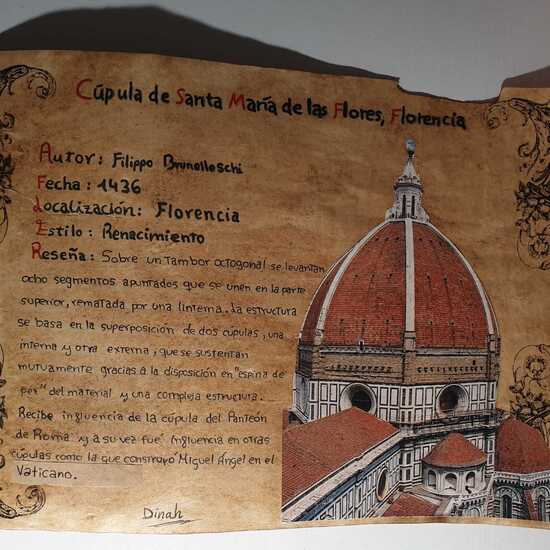 Cúpula de Santa María de las Flores, Florencia
Autor: Filippo Brunelleschi
Fecha: 1436
Localización: Florencia
Estilo: Renacimiento
Reseña: Sobre un tambor octogonal se levantan
ocho segmentos apuntados que se unen en la parte
superior, rematada por una linterna. La estructura
se basa en la superposición de dos cúpulas, una
interna y otra externa, que se sustentan
mutuamente gracias a la disposición en "espina de
pez" del material y una compleja estructura.
Recibe influencia de la cúpula del Panteón
de Roma y a su vez fue influencia en otras
cúpulas como la que construyó Miguel Ángel en el
Vaticano.
Dinah